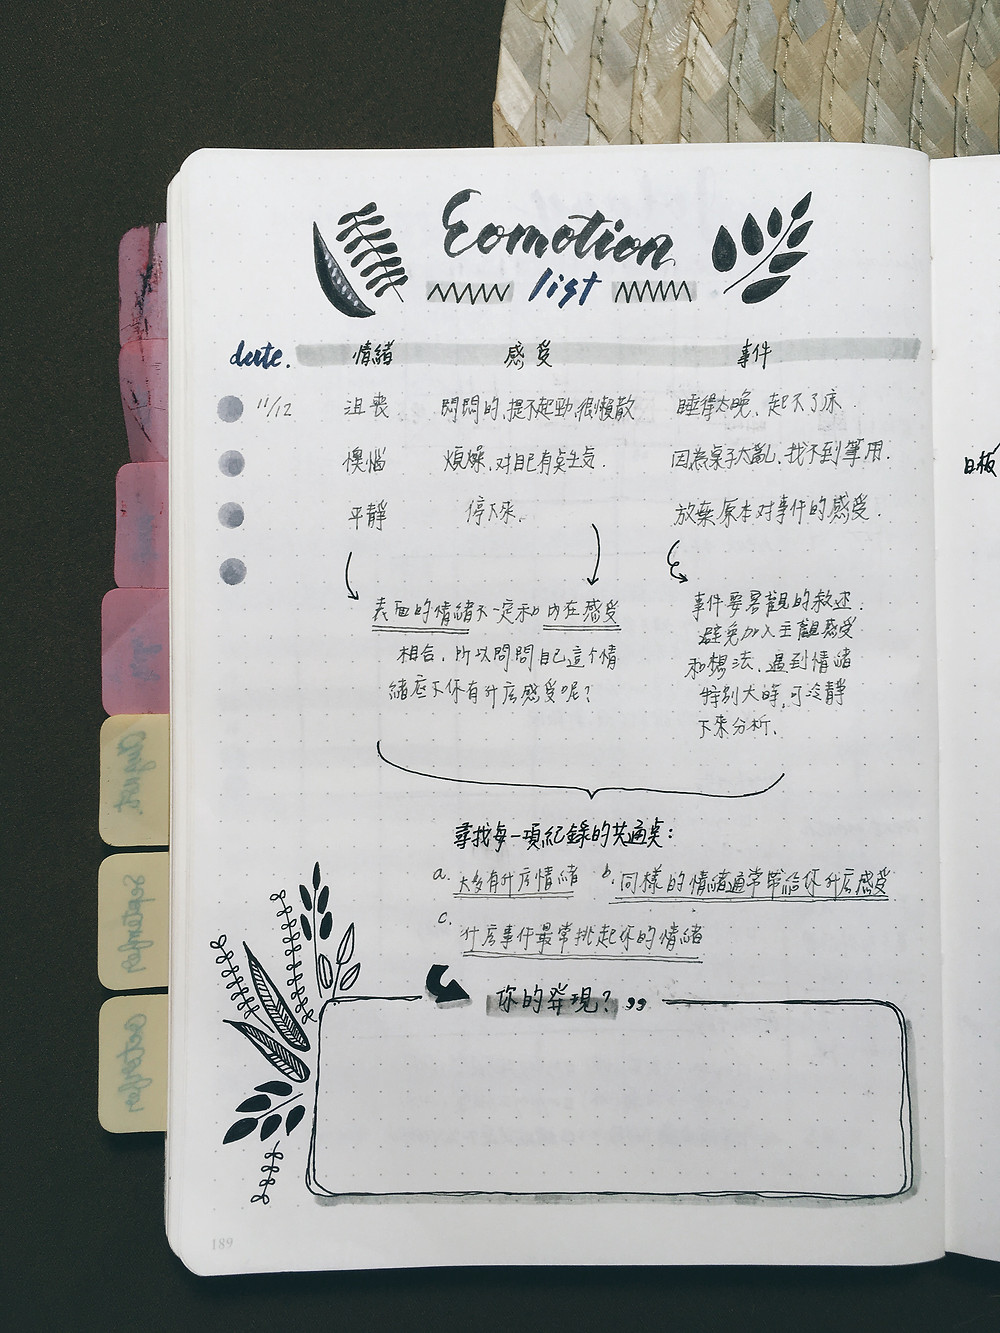 Eomotion
list
date. 情緒 感受 事件
11/12 沮喪 悶悶的、提不起勁、很懶散 睡得太晚、起不了床.
懊惱 煩燥、对自己有奌生気. 因為桌子太亂、找不到筆用.
平靜 停下來. 放棄原本对事件的感受.
表面的情緒不一定和內在感受
相合、所以問問自己這个情
緒底下你有什庅感受呢?
事件要客觀的敘述.
避免加入主觀感受
和想法、遇到情緒
特別大時,可冷靜
下來分析.
尋找每一項紀錄的共通奌:
a. 大多有什庅情緒 b. 同樣的情緒通常帶給你什庅感受
c. 什庅事件最常挑起你的情緒
你的発現? ,,
189
日板
August
September